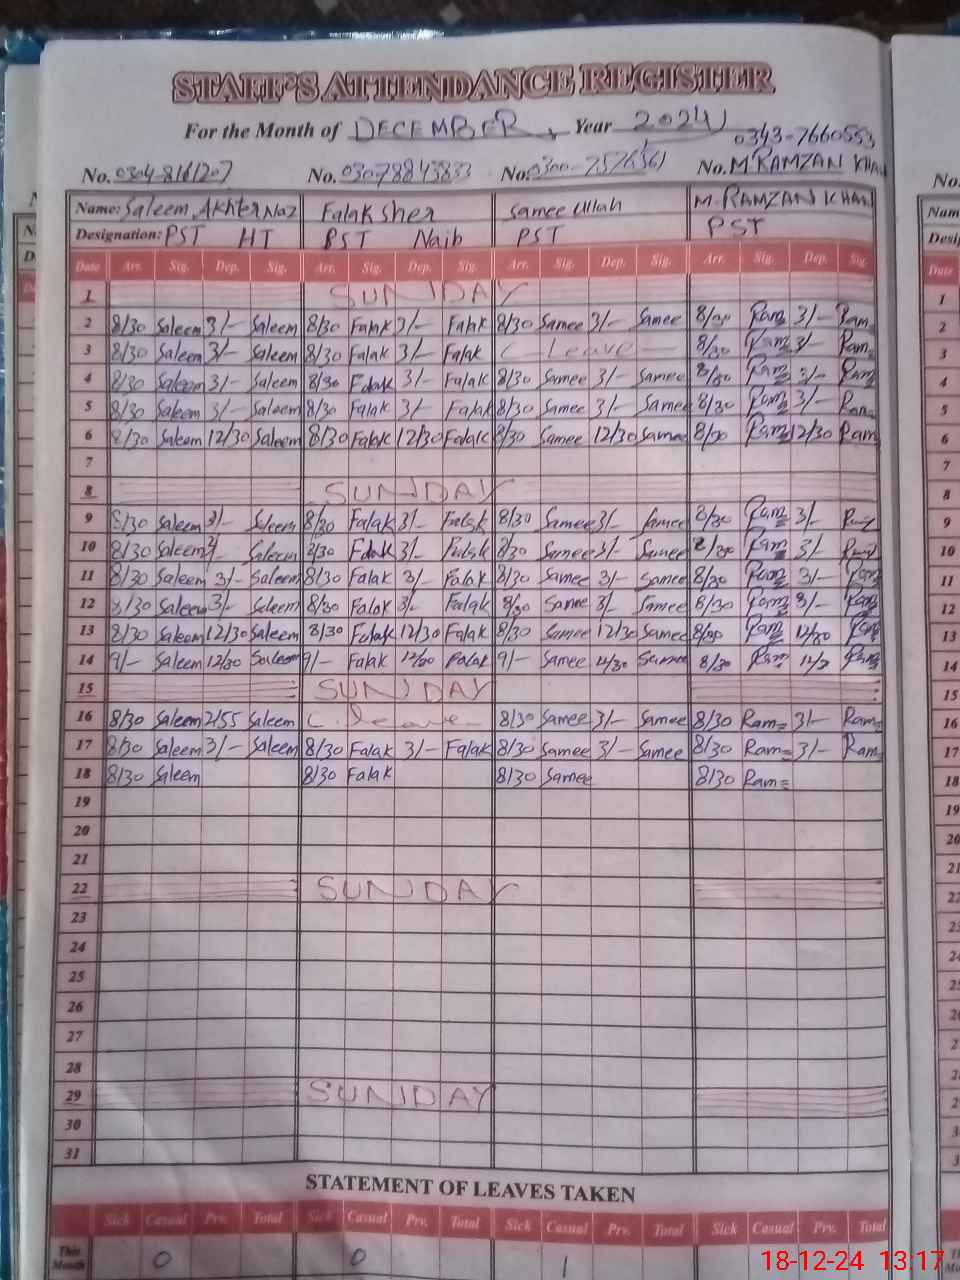 STAFF'S ATTENDANCE REGISTER
For the Month of DECEMBER, Year 2024
0343-7660553
No. No. No. No. M RAMZAN KHAN
Name: Saleem Akhter Naz Falak Sher Samee Ullah M. RAMZAN KHAN
Designation: PST HT PST Naib PST PST
Date Arr. Sig. Dep. Sig. Arr. Sig. Dep. Sig. Arr. Sig. Dep. Sig. Arr. Sig. Dep. Sig.
1 SUNDAY
2 8/30 Saleem 3/- Saleem 8/30 Falak 3/- Falak 8/30 Samee 3/- Samee 8/30 Ram 3/- Ram
3 8/30 Saleem 3/- Saleem 8/30 Falak 3/- Falak C Leave 8/30 Ram 3/- Ram
4 8/30 Saleem 3/- Saleem 8/30 Falak 3/- Falak 8/30 Samee 3/- Samee 8/30 Ram 3/- Ram
5 8/30 Saleem 3/- Saleem 8/30 Falak 3/- Falak 8/30 Samee 3/- Samee 8/30 Ram 3/- Ram
6 8/30 Saleem 12/30 Saleem 8/30 Falak 12/30 Falak 8/30 Samee 12/30 Samee 8/30 Ram 12/30 Ram
7
8 SUNDAY
9 8/30 Saleem 3/- Saleem 8/30 Falak 3/- Falak 8/30 Samee 3/- Samee 8/30 Ram 3/- Ram
10 8/30 Saleem Saleem 8/30 Falak 3/- Falak 8/30 Samee 3/- Samee 8/30 Ram 3/- Ram
11 8/30 Saleem 3/- Saleem 8/30 Falak 3/- Falak 8/30 Samee 3/- Samee 8/30 Ram 3/- Ram
12 8/30 Saleem 3/- Saleem 8/30 Falak 3/- Falak 8/30 Samee 3/- Samee 8/30 Ram 3/- Ram
13 8/30 Saleem 12/30 Saleem 8/30 Falak 12/30 Falak 8/30 Samee 12/30 Samee 8/30 Ram 12/30 Ram
14 9/- Saleem 12/30 Saleem 9/- Falak Falak 9/- Samee Samee 8/30 Ram Ram
15 SUNDAY
16 8/30 Saleem 2/55 Saleem C. leave 8/30 Samee 3/- Samee 8/30 Ram 3/- Ram
17 8/30 Saleem 3/- Saleem 8/30 Falak 3/- Falak 8/30 Samee 3/- Samee 8/30 Ram 3/- Ram
18 8/30 Saleem 8/30 Falak 8/30 Samee 8/30 Ram
19
20
21
22 SUNDAY
23
24
25
26
27
28
29 SUNDAY
30
31
STATEMENT OF LEAVES TAKEN
Sick Casual Prv. Total Sick Casual Prv. Total Sick Casual Prv. Total Sick Casual Prv. Total
This Month 0 0 1
18-12-24 13:17